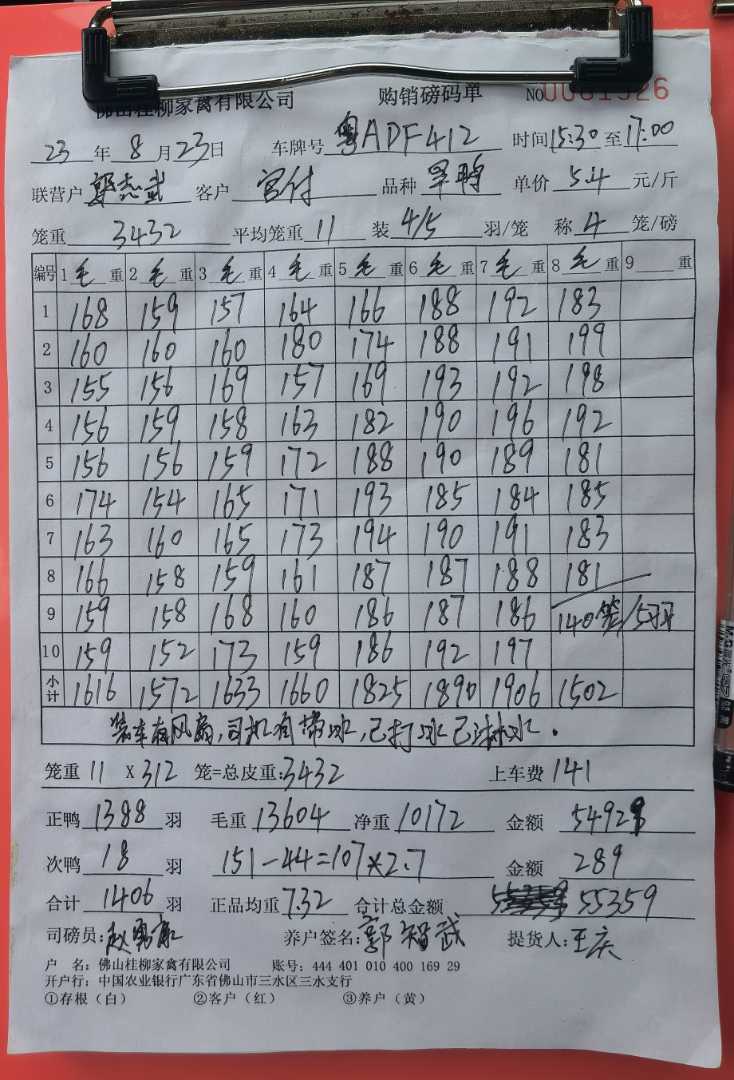 佛山桂柳家禽有限公司 购销磅码单 NO
23 年 8 月 23 日 车牌号 粤ADF412 时间 15:30 至 17:00
联营户 客户 宫付 品种 单价 5.4 元/斤
笼重 3432 平均笼重 11 装 4/5 羽/笼 称 4 笼/磅
编号 1 毛 重 2 毛 重 3 毛 重 4 毛 重 5 毛 重 6 毛 重 7 毛 重 8 毛 重 9 重
1 168 159 157 164 166 188 192 183
2 160 160 160 180 174 188 191 199
3 155 156 169 157 169 193 192 198
4 156 159 158 163 182 190 196 192
5 156 156 159 172 188 190 189 181
6 174 154 165 171 193 185 184 185
7 163 160 165 173 194 190 191 183
8 166 158 159 161 187 187 188 181
9 159 158 168 160 186 187 186 140笼/5羽
10 159 152 173 159 186 192 197
小计 1616 1572 1633 1660 1825 1890 1906 1502
装车有风扇,司机有带冰,已打冰已淋水.
笼重 11 X 312 笼=总皮重:3432 上车费 141
正鸭 1388 羽 毛重 13604 净重 10172 金额 54928
次鸭 18 羽 151-44=107*2.7 金额 289
合计 1406 羽 正品均重 7.32 合计总金额 55359
司磅员: 养户签名:郭智武 提货人:王庆
户 名:佛山桂柳家禽有限公司 账号:444 401 010 400 169 29
开户行:中国农业银行广东省佛山市三水区三水支行
①存根(白) ②客户(红) ③养户(黄)